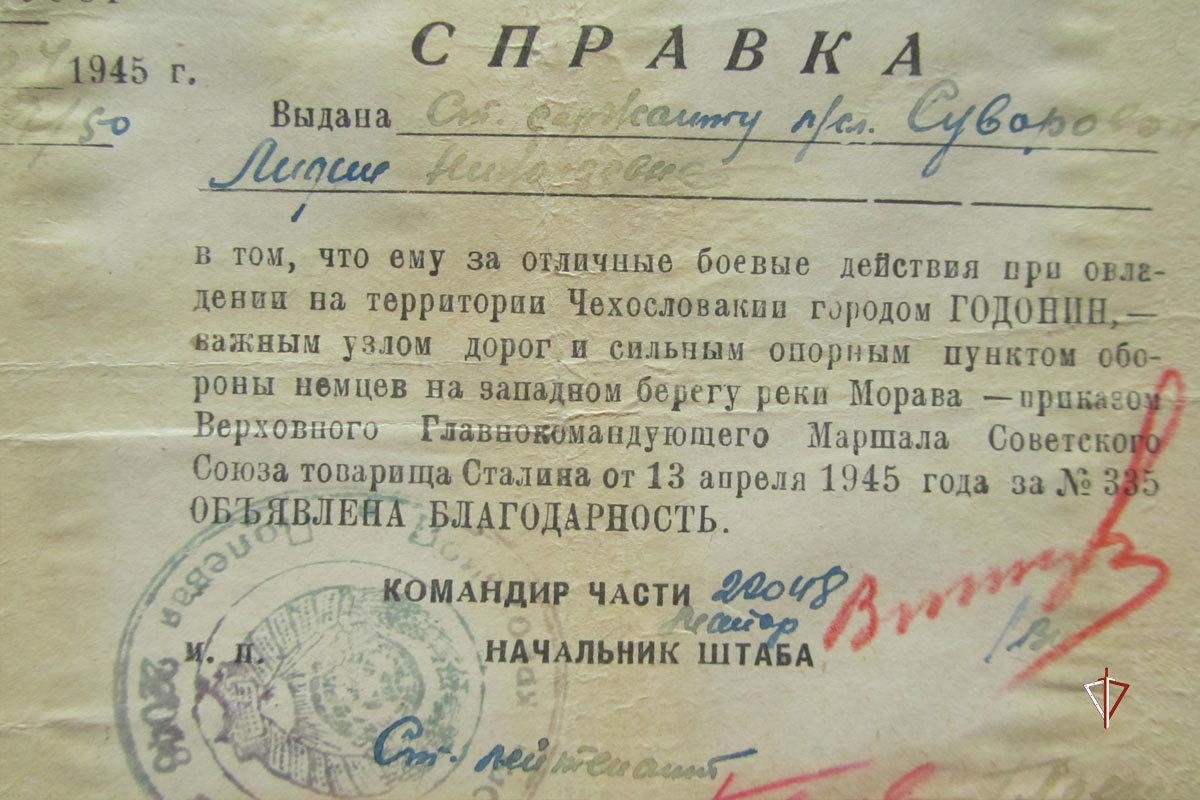 СПРАВКА
1945 г.
/50
Выдана Ст. сержанту м/сл. Суворовой
Лидии Николаевне
в том, что ему за отличные боевые действия при овла-
дении на территории Чехословакии городом ГОДОНИН,—
важным узлом дорог и сильным опорным пунктом обо-
роны немцев на западном берегу реки Морава —приказом
Верховного Главнокомандующего Маршала Советского
Союза товарища Сталина от 13 апреля 1945 года за № 335
ОБЪЯВЛЕНА БЛАГОДАРНОСТЬ.
КОМАНДИР ЧАСТИ 22048
майор
м. п. НАЧАЛЬНИК ШТАБА
Ст. лейтенант
Полевая 22048